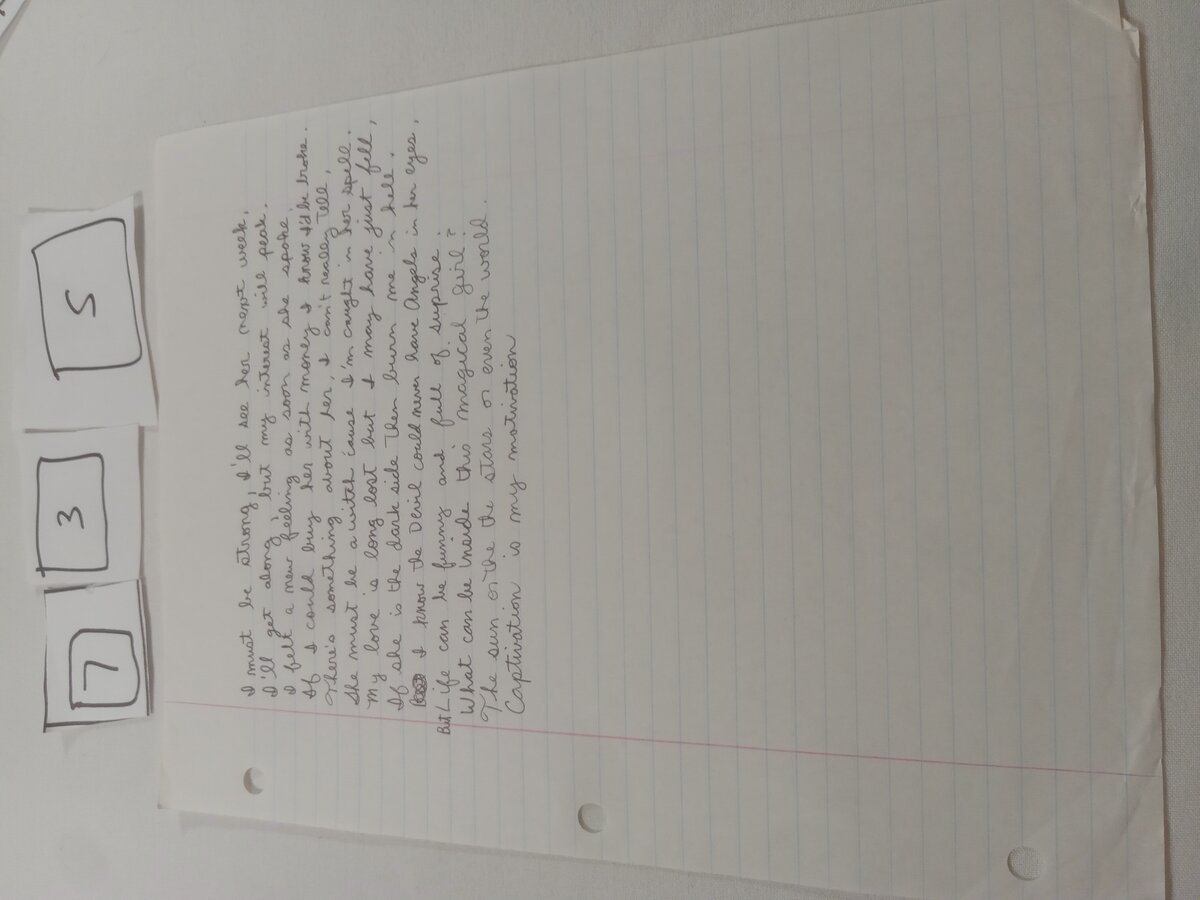 7 3 5
I must be strong, I'll see her next week,
I'll get along, but my interest will peak.
I felt a new feeling as soon as she spoke,
If I could buy her with money I know I'd be broke.
There's something about her, I can't really tell,
She must be a witch cause I'm caught in her spell.
My love is long lost but I may have just fell,
If she is the dark side then burn me in hell.
I know the Devil could never have Angels in her eyes,
But Life can be funny and full of suprise.
What can be inside this magical girl?
The sun or the the stars or even the world.
Captivation is my motivation